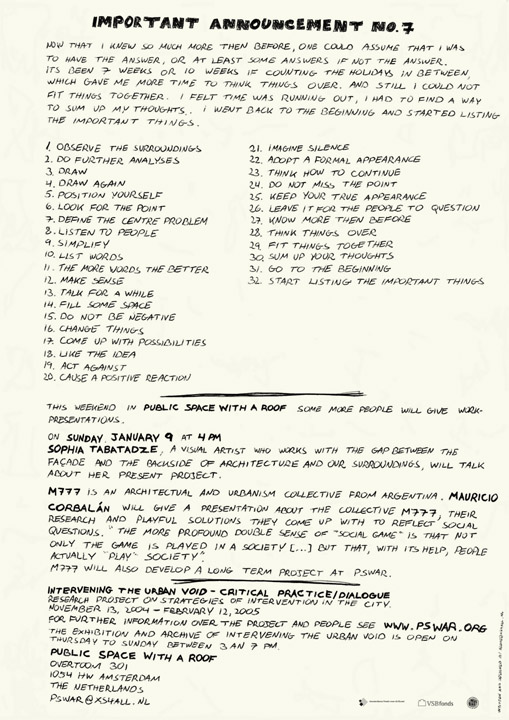 IMPORTANT ANNOUNCEMENT NO.7
NOW THAT I KNEW SO MUCH MORE THEN BEFORE, ONE COULD ASSUME THAT I WAS
TO HAVE THE ANSWER, OR AT LEAST SOME ANSWERS IF NOT THE ANSWER.
ITS BEEN 7 WEEKS OR 10 WEEKS IF COUNTING THE HOLIDAYS IN BETWEEN,
WHICH GAVE ME MORE TIME TO THINK THINGS OVER. AND STILL I COULD NOT
FIT THINGS TOGETHER. I FELT TIME WAS RUNNING OUT, I HAD TO FIND A WAY
TO SUM UP MY THOUGHTS.. I WENT BACK TO THE BEGINNING AND STARTED LISTING
THE IMPORTANT THINGS.
1. OBSERVE THE SURROUNDINGS
2. DO FURTHER ANALYSES
3. DRAW
4. DRAW AGAIN
5. POSITION YOURSELF
6. LOOK FOR THE POINT
7. DEFINE THE CENTRE PROBLEM
8. LISTEN TO PEOPLE
9. SIMPLIFY
10. LIST WORDS
11. THE MORE WORDS THE BETTER
12. MAKE SENSE
13. TALK FOR A WHILE
14. FILL SOME SPACE
15. DO NOT BE NEGATIVE
16. CHANGE THINGS
17. COME UP WITH POSSIBILITIES
18. LIKE THE IDEA
19. ACT AGAINST
20. CAUSE A POSITIVE REACTION
21. IMAGINE SILENCE
22. ADOPT A FORMAL APPEARANCE
23. THINK HOW TO CONTINUE
24. DO NOT MISS THE POINT
25. KEEP YOUR TRUE APPEARANCE
26. LEAVE IT FOR THE PEOPLE TO QUESTION
27. KNOW MORE THEN BEFORE
28. THINK THINGS OVER
29. FIT THINGS TOGETHER
30. SUM UP YOUR THOUGHTS
31. GO TO THE BEGINNING
32. START LISTING THE IMPORTANT THINGS
THIS WEEKEND IN PUBLIC SPACE WITH A ROOF SOME MORE PEOPLE WILL GIVE WORK-
PRESENTATIONS.
ON SUNDAY JANUARY 9 AT 4 PM
SOPHIA TABATADZE, A VISUAL ARTIST WHO WORKS WITH THE GAP BETWEEN THE
FAÇADE AND THE BACKSIDE OF ARCHITECTURE AND OUR SURROUNDINGS, WILL TALK
ABOUT HER PRESENT PROJECT.
M777 IS AN ARCHITECTUAL AND URBANISM COLLECTIVE FROM ARGENTINA. MAURICIO
CORBALÁN WILL GIVE A PRESENTATION ABOUT THE COLLECTIVE M777, THEIR
RESEARCH AND PLAYFUL SOLUTIONS THEY COME UP WITH TO REFLECT SOCIAL
QUESTIONS. "THE MORE PROFOUND DOUBLE SENSE OF "SOCIAL GAME" IS THAT NOT
ONLY THE GAME IS PLAYED IN A SOCIETY [...] BUT THAT, WITH ITS HELP, PEOPLE
ACTUALLY "PLAY" SOCIETY".
M777 WILL ALSO DEVELOP A LONG TERM PROJECT AT PSWAR.
INTERVENING THE URBAN VOID - CRITICAL PRACTICE/DIALOGUE
RESEARCH PROJECT ON STRATEGIES OF INTERVENTION IN THE CITY.
NOVEMBER 13, 2004 - FEBRUARY 12, 2005
FOR FURTHER INFORMATION OVER THE PROJECT AND PEOPLE SEE WWW.PSWAR.ORG
THE EXHIBITION AND ARCHIVE OF INTERVENING THE URBAN VOID IS OPEN ON
THURSDAY TO SUNDAY BETWEEN 3 AN 7 PM.
PUBLIC SPACE WITH A ROOF
OVERTOOM 301
1054 HW AMSTERDAM
THE NETHERLANDS
PSWAR@XS4ALL.NL
VSBfonds